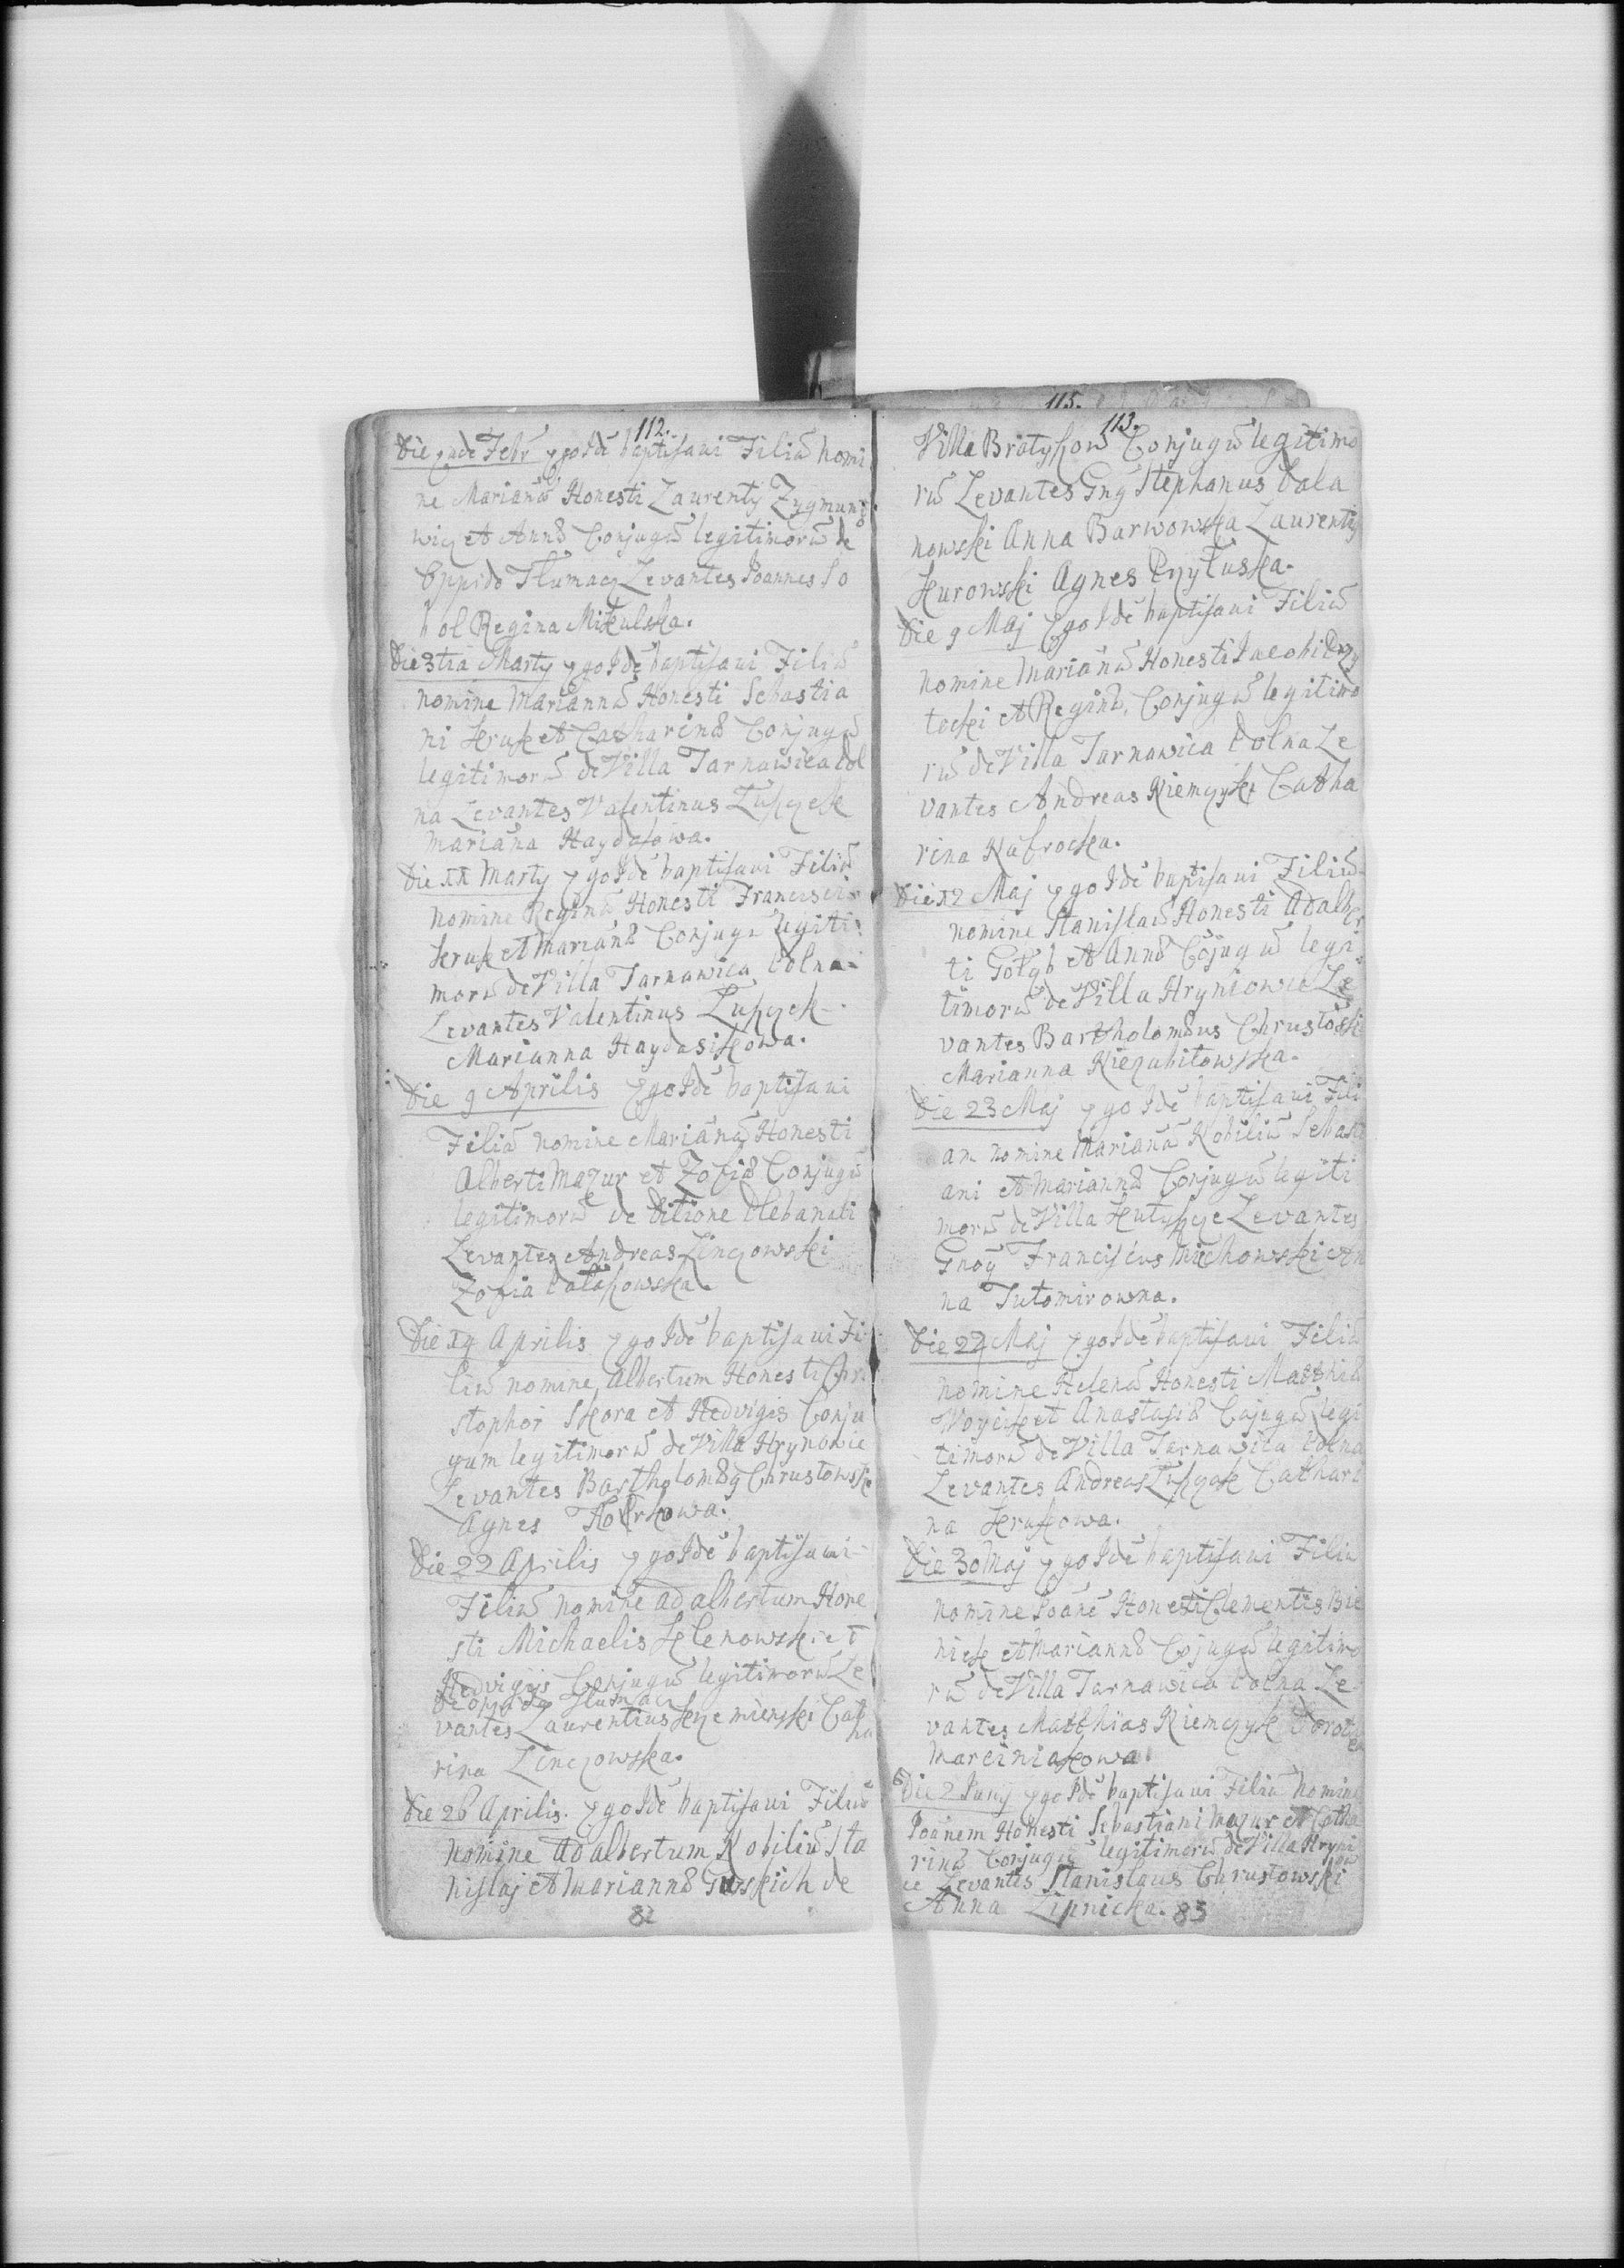 112.
Die 2nda Febr ego Idē baptisavi Filiā nomi
ne Mariannā Honesti Laurenty Zygmunto
wicz et Annæ Conjugū legitimorū de
Oppido Tłumacz Levantes Joannes So
bol Regina Mikulska.
Die 3tia Marty ego Idē baptisavi Filiā
nomine Mariannā Honesti Sebastia
ni Kruk et Catharinæ Conjugū
legitimorū de Villa Tarnawica dol
na Levantes Valentinus Łupczek
Mariāna Haydasowa.
Die XX Marty ego Idē baptisavi Filiā
nomine Reginā Honesti Francisci
Kruk et Mariānæ Conjugū legiti
morū de Villa Tarnawica dolna
Levantes Valentinus Łupczek
Marianna Haydasikowa.
Die 9 Aprilis ego Idē baptisavi
Filiā nomine Mariānā Honesti
Alberti Mazur et Zofiæ Conjugū
legitimorū de Ditione Plebanali
Levantes Andreas Linczowski
Zofia
Die 14 Aprilis ego Idē baptisavi Fi
liū nomine Albertum Honesti Chri
stophori Skora et Hedvigis Conju
gum legitimorū de Villa Hrynowie
Levantes Bartholomæq Chrustowski
Agnes
Die 22 Aprilis ego Idē baptisavi
Filiū nomine Adalbertum Hone
sti Michaelis Klenowski et
Hedvigijs Conjugū legitimorū Le
de oppido Tłumacz
vantes Laurentius Krzemienski Catha
rina Linczowska.
Die 26 Aprilis. ego Idē baptisavi Filiū
nomine Adalbertum Nobiliū Sta
nislaj et Mariannæ Guskich de
82
115.
113.
Villa Bratyszow Conjugū legitimo
rū Levantes Gnq Stephanus Bala
nowski Anna Barwowska Laurentiq
Kurowski Agnes Przyłuska.
Die 9 Maj ego Idē baptisavi Filiā
nomine Mariānā Honesti Jacobi Drzy
tecki et Reginæ Conjugū legitimo
rū de Villa Tarnawica dolna Le
vantes Andreas Niemczyk Catha
rina
Die 12 Maj ego Idē baptisavi Filiū
nomine Stanisłaū Honesti Adalber
ti Gołyb et Annæ Cōjugū legi
timorū de Villa Hryniowie Le
vantes Bartholomæus Chrustowski
Marianna Niezabitowska.
Die 23 Maj ego Idē baptisavi Fili
am nomine Mariānā Nobiliū Sebasti
ani et Mariannæ Conjugū legiti
morū de Villa Levantes
Gnoq Franciscus Miechowski An
na Tutomirowna.
Die 24 Maj ego Idē baptisavi Filiā
nomine Helenā Honesti Matthiæ
Woycik et Anastasiæ Cōjugū legi
timorū de Villa Tarnawica dolna
Levantes Andreas Łupczak Cathari
na Krukowa.
Die 30 Maj ego Idē baptisavi Filiū
nomine Joānē Honesti Clementis Bie
niek et Mariannæ Cōjugū legitimo
rū de Villa Tarnawica dolna Le
vantes Matthias Niemczyk Dorothea
Marciniakowa.
Die 2 Juny ego Idē baptisavi Filiū nomine
Joānem Honesti Sebastiani Mazur et Catha
rinæ Conjugū legitimorū de Villa Hryniow
ie Levantes Stanislaus Chrustowski
Anna Lipnicka. 83